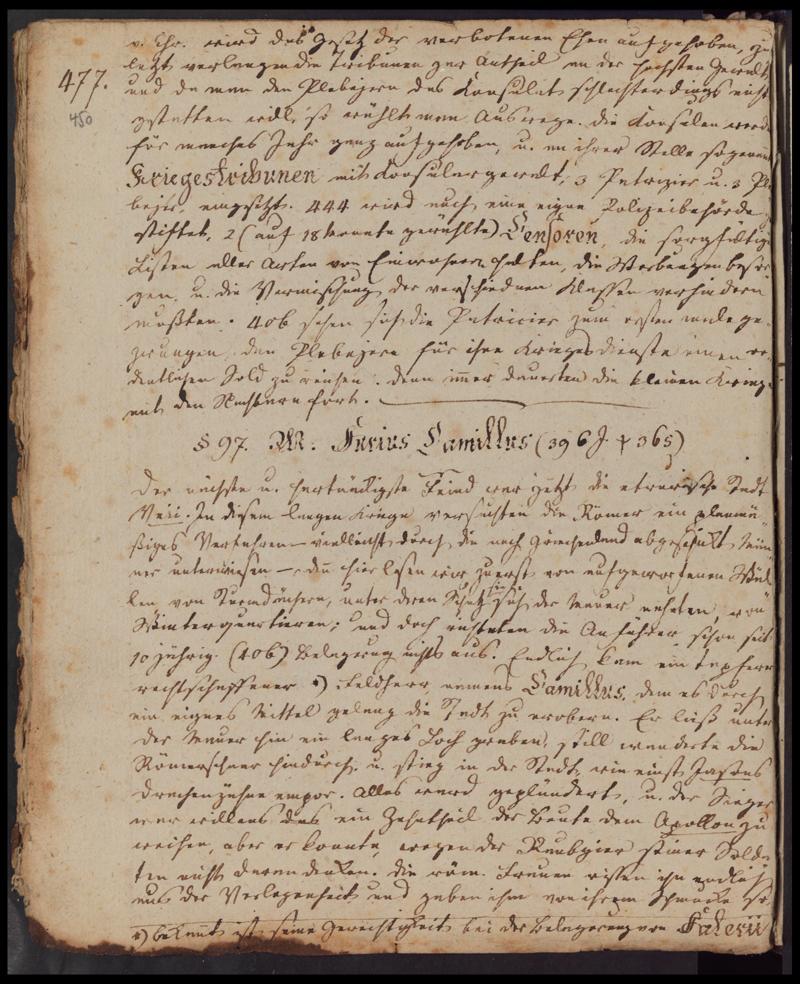 v. Chr. wird das Gesetz der verbotenen Ehen aufgehoben, zu
lezt verlangen die Tribunen gar Antheil an der höchsten Gewalt,
477. und da man den Plebejern das Konsulat schlechterdings nicht
450 gestatten will, so wählt man Auswege. die Konsulen werden
für manches Jahr ganz aufgehoben, u. an ihrer Stelle sogenannte
Kriegestribunen mit Konsulargewalt, 3 Patrizier u. 3 Ple
bejer, eingesetzt. 444 wird noch eine eigne Polizeibehörde
stiftet, 2 (auf 18 Monate gewählte) Censoren, die sorgfältige
Listen aller Arten von Einwohnern halten, die Werbungen besor
gen, u. die Vermischung der verschiednen Klassen verhindern
mußten. 406 sehen sich die Patricier zum ersten male ge-
zwungen, den Plebejern für ihre Kriegesdienste einen or-
dentlichen Sold zu reichen. denn immer dauerten die kleinen Kriege
mit den Nachbarn fort.
§ 97. M. Furius Camillus (396 J. † 365)
Der nächste u. hartnäckigste Feind war jetzt die etrurische Stadt
Veii. In diesem langen Kriege versuchten die Römer ein planmä-
ßiges Verfahren – vielleicht durch die nach Griechenland abgeschickt Män
ner unterwiesen – denn hier lesen wir zuerst von aufgeworfenen Wäl
len von Sturmdächern, unter deren Schutz sie sich der Mauer nahten, von
Winterquartieren; und doch richteten die Anführer schon seit
10 jährig. (406) Belagerung nichts aus. Endlich kam ein tapferer
rechtschaffener *) Feldherr, namens Camillus, dem es durch
ein eignes Mittel gelang die Stadt zu erobern. Er ließ unter
der Mauer hin ein langes Loch graben, still wanderte die
Römerschaar hindurch, u. stieg in der Stadt, wie einst Jasons
Drachenzähne empor. Alles ward geplündert, u. der Sieger
war willens das ein Zehntheil der Beute dem Apollon zu
weihen, aber er konnte, wegen der Raubgier seiner Solda
ten nicht daran denken. die röm. Frauen rissen ihn endlich
aus der Verlegenheit und gaben ihm von ihrem Schmucke so
*) bekannt ist seine Gerechtigkeit bei der Belagerung von Falerii